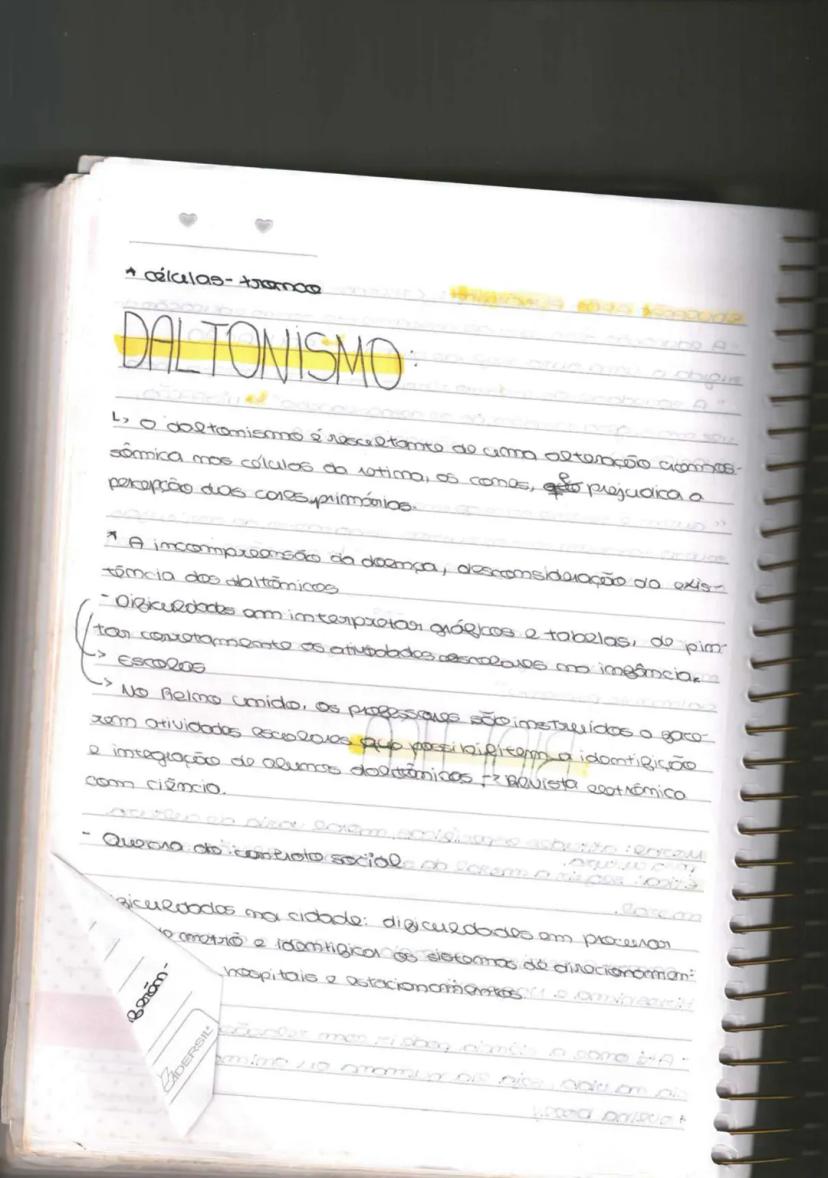 * células-tronco
DALTONISMO:
↳ O daltonismo é resultante de uma alteração cromos-
sômica nas células da retina, os cones, e prejudica a
percepção das cores primárias.
* A incompreensão da doença, desconsideração da exis-
tência dos daltônicos
- Dificuldades em interpretar gráficos e tabelas, de pin-
tar corretamente as atividades escolares na infância.
-> Escolas
-> No Reino unido, os professores são instruídos a faze-
rem atividades escolares que possibilitem a identificação
e integração de alunos daltônicos -> Revista eletrônica
com ciência.
- Quebra do contrato social
ficuldades na cidade: dificuldades em processar
metrô e identificar os sistemas de direcionamen-
hospitais e estacionamentos